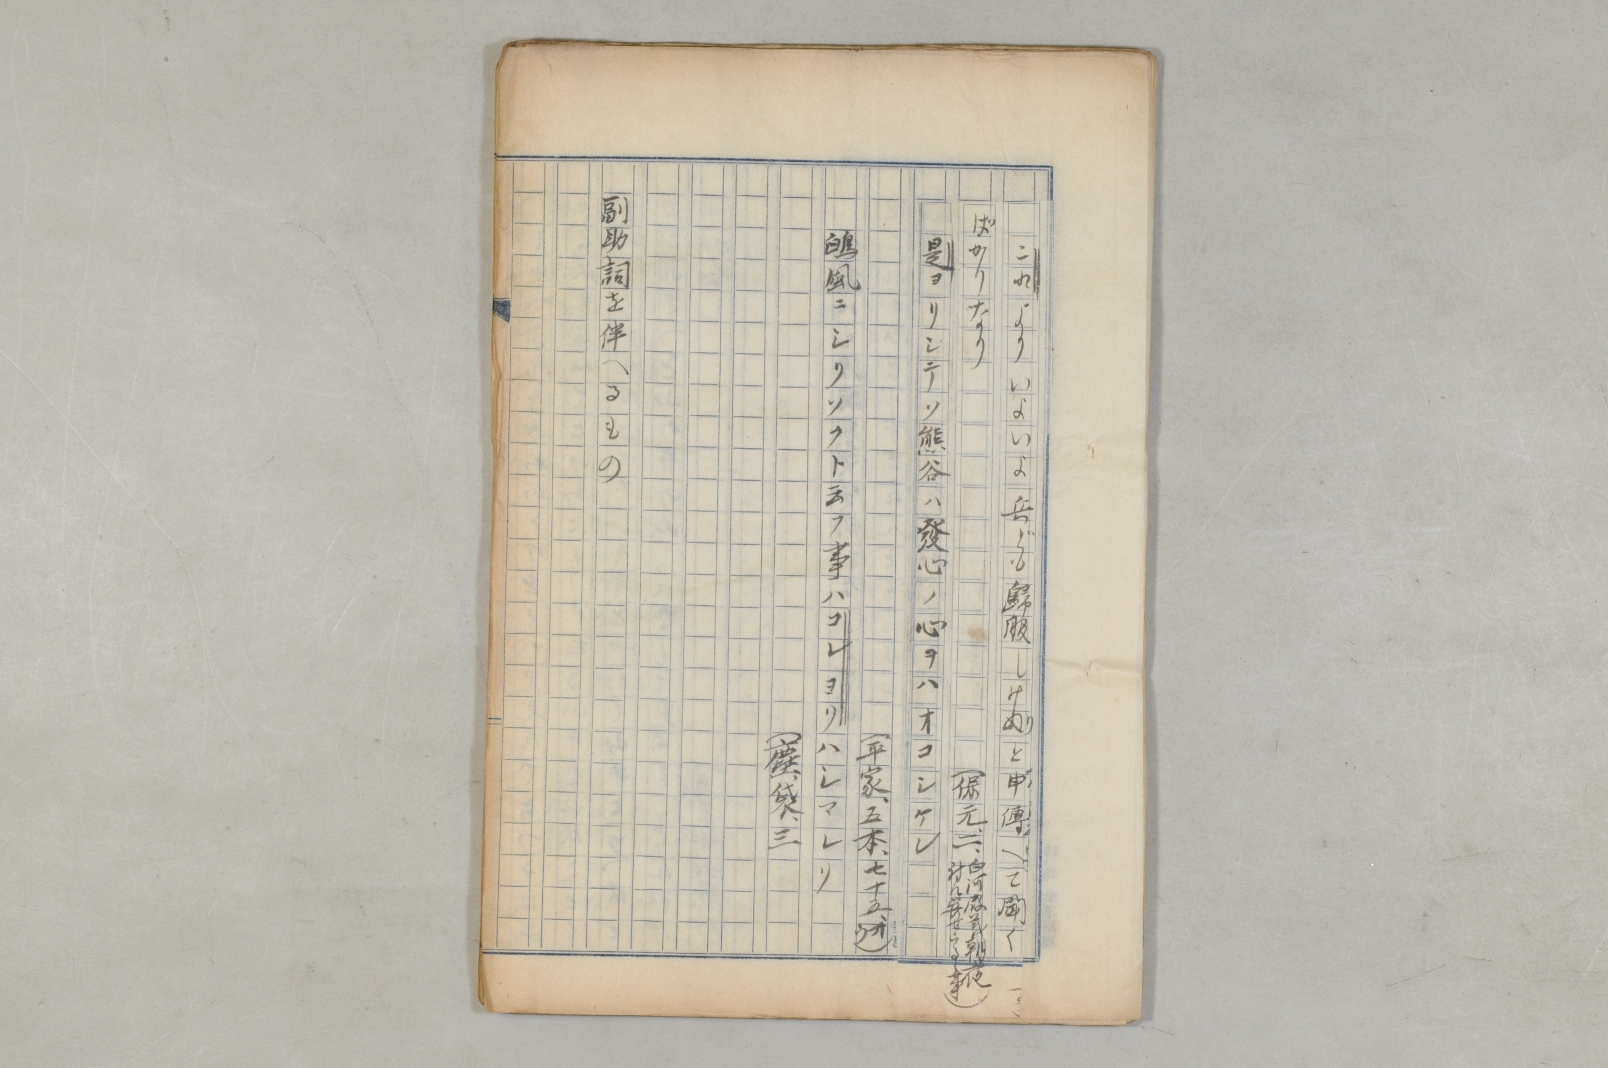 これよりいよいよ兵ども歸服しけりと申傳へて聞く
ばかりなり
(保元、二、白河殿義朝夜討に寄せらるる事)
是ヨリシテソ熊谷ハ發心ノ心ヲハオコシケレ
(平家、五本、七十五、オ)
鴟風ニシリソクト云フ事ハコレヨリハシマレリ
(塵袋、三
副助詞を伴へるもの